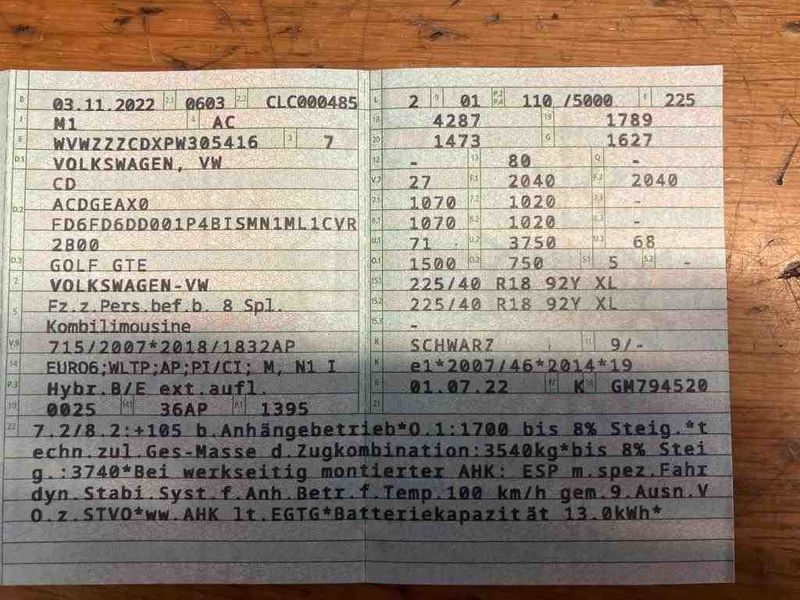 B 03.11.2022 2.1 0603 2.2 CLC000485
J M1 4 AC
E WVWZZZCDXPW305416 3 7
D.1 VOLKSWAGEN, VW
CD
D.2 ACDGEAX0
FD6FD6DD001P4BISMN1ML1CVR
2B00
D.3 GOLF GTE
2 VOLKSWAGEN-VW
5 Fz.z.Pers.bef.b. 8 Spl.
Kombilimousine
V.9 715/2007*2018/1832AP
14 EURO6;WLTP;AP;PI/CI; M, N1 I
P.3 Hybr.B/E ext.aufl.
10 0025 14.1 36AP P.1 1395
L 2 9 01 P.2 P.4 110 /5000 T 225
18 4287 19 1789
20 1473 G 1627
12 - 13 80 Q -
V.7 27 F.1 2040 F.2 2040
7.1 1070 7.2 1020 7.3 -
8.1 1070 8.2 1020 8.3 -
U.1 71 U.2 3750 U.3 68
O.1 1500 O.2 750 S.1 5 S.2 -
15.1 225/40 R18 92Y XL
15.2 225/40 R18 92Y XL
15.3 -
R SCHWARZ 11 9/-
K e1*2007/46*2014*19
6 01.07.22 17 K 16 GM794520
21
22 7.2/8.2:+105 b.Anhängebetrieb*O.1:1700 bis 8% Steig.*t
echn.zul.Ges-Masse d.Zugkombination:3540kg*bis 8% Stei
g.:3740*Bei werkseitig montierter AHK: ESP m.spez.Fahr
dyn.Stabi.Syst.f.Anh.Betr.f.Temp.100 km/h gem.9.Ausn.V
O.z.STVO*ww.AHK lt.EGTG*Batteriekapazität 13.0kWh*